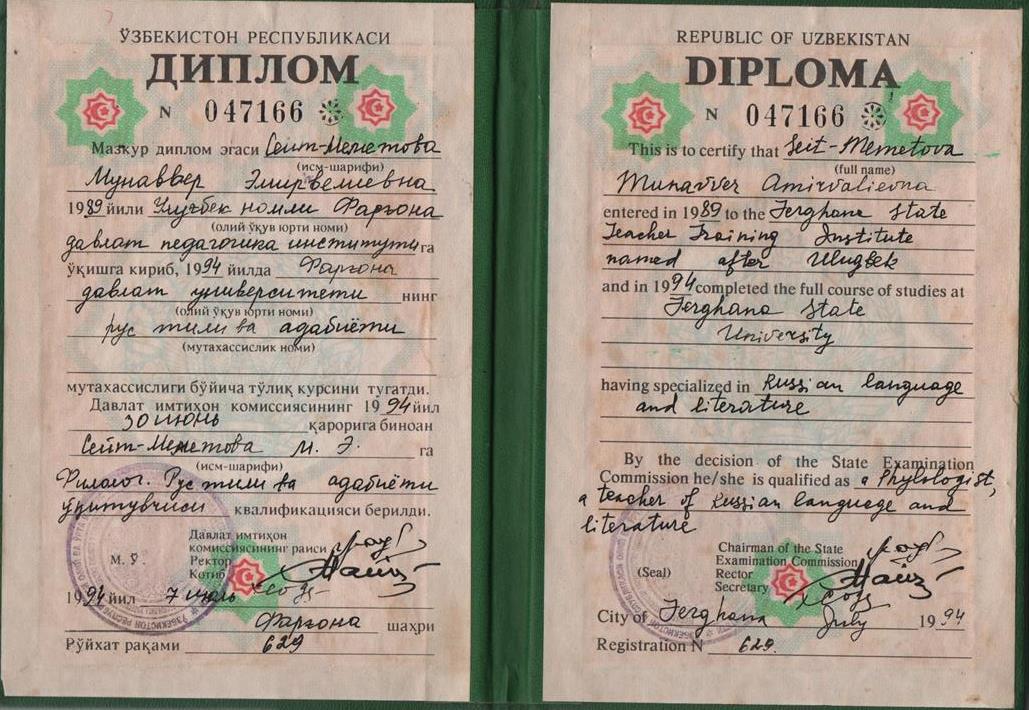 ЎЗБЕКИСТОН РЕСПУБЛИКАСИ
ДИПЛОМ
N 047166
Мазкур диплом эгаси Сеит-Меметова
(исм-шарифи)
Мунаввер Эмирвелиевна
1989 йили Улуғбек номли Фарғона
(олий ўқув юрти номи)
давлат педагогика институтига
ўқишга кириб, 1994 йилда Фарғона
давлат университети нинг
(олий ўқув юрти номи)
рус тили ва адабиёти
(мутахассислик номи)
мутахассислиги бўйича тўлиқ курсини тугатди.
Давлат имтиҳон комиссиясининг 1994 йил
30 июнь қарорига биноан
Сеит-Меметова М. Э. га
(исм-шарифи)
Филолог. Рус тили ва адабиёти
ўқитувчиси квалификацияси берилди.
Давлат имтиҳон
комиссиясининг раиси
М. Ў. Ректор
Котиб
1994 йил 7 июль
Фарғона шаҳри
Рўйхат рақами 629
REPUBLIC OF UZBEKISTAN
DIPLOMA
N 047166
This is to certify that Seit-Memetova
(full name)
Munavver Amirvalievna
entered in 1989 to the Ferghana State
Teacher Training Institute
named after Ulugbek
and in 1994 completed the full course of studies at
Ferghana State
University
having specialized in Russian language
and literature
By the decision of the State Examination
Commission he/she is qualified as a Phylologist,
a teacher of Russian language and
literature
Chairman of the State
Examination Commission
(Seal) Rector
Secretary
City of Ferghana July 1994
Registration N 629.